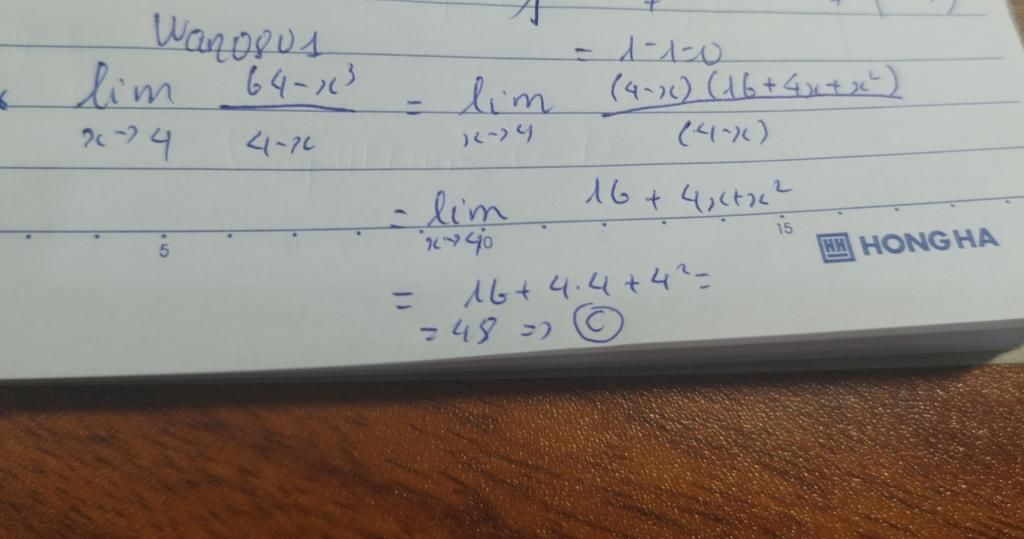 Wan0801
= 1-1=0
lim x→4 64-x³ / 4-x = lim x→4 (4-x)(16+4x+x²) / (4-x)
= lim x→4 16 + 4x+x²
5 10 15
HH HONG HA
= 16 + 4.4 + 4² =
= 48 => C